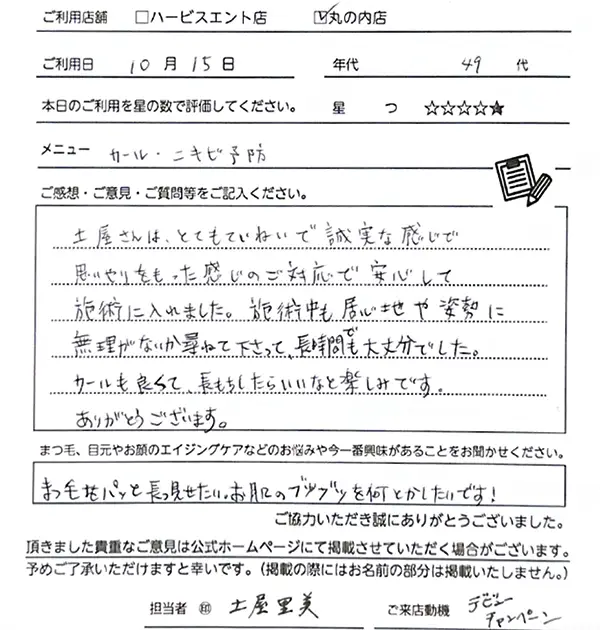 ご利用店舗 □ハービスエント店 ☑丸の内店
ご利用日 10月15日 年代 49代
本日のご利用を星の数で評価してください。 星 つ ☆☆☆☆★
メニュー カール・ニキビ予防
ご感想・ご意見・ご質問等をご記入ください。
土屋さんは、とてもていねいで誠実な感じで
思いやりをもった感じのご対応で安心して
施術に入れました。施術中も居心地や姿勢に
無理がないか尋ねて下さって、長時間でも大丈分でした。
カールも良くて、長もちしたらいいなと楽しみです。
ありがとうございます。
まつ毛、目元やお顔のエイジングケアなどのお悩みや今一番興味があることをお聞かせください。
まつ毛をパッと長っ見せたい。お肌のブツブツを何とかしたいです!
ご協力いただき誠にありがとうございました。
頂きました貴重なご意見は公式ホームページにて掲載させていただく場合がございます。
予めご了承いただけますと幸いです。(掲載の際にはお名前の部分は掲載いたしません。)
担当者 ㊞ 土屋里美 ご来店動機 デビュー
キャンペーン